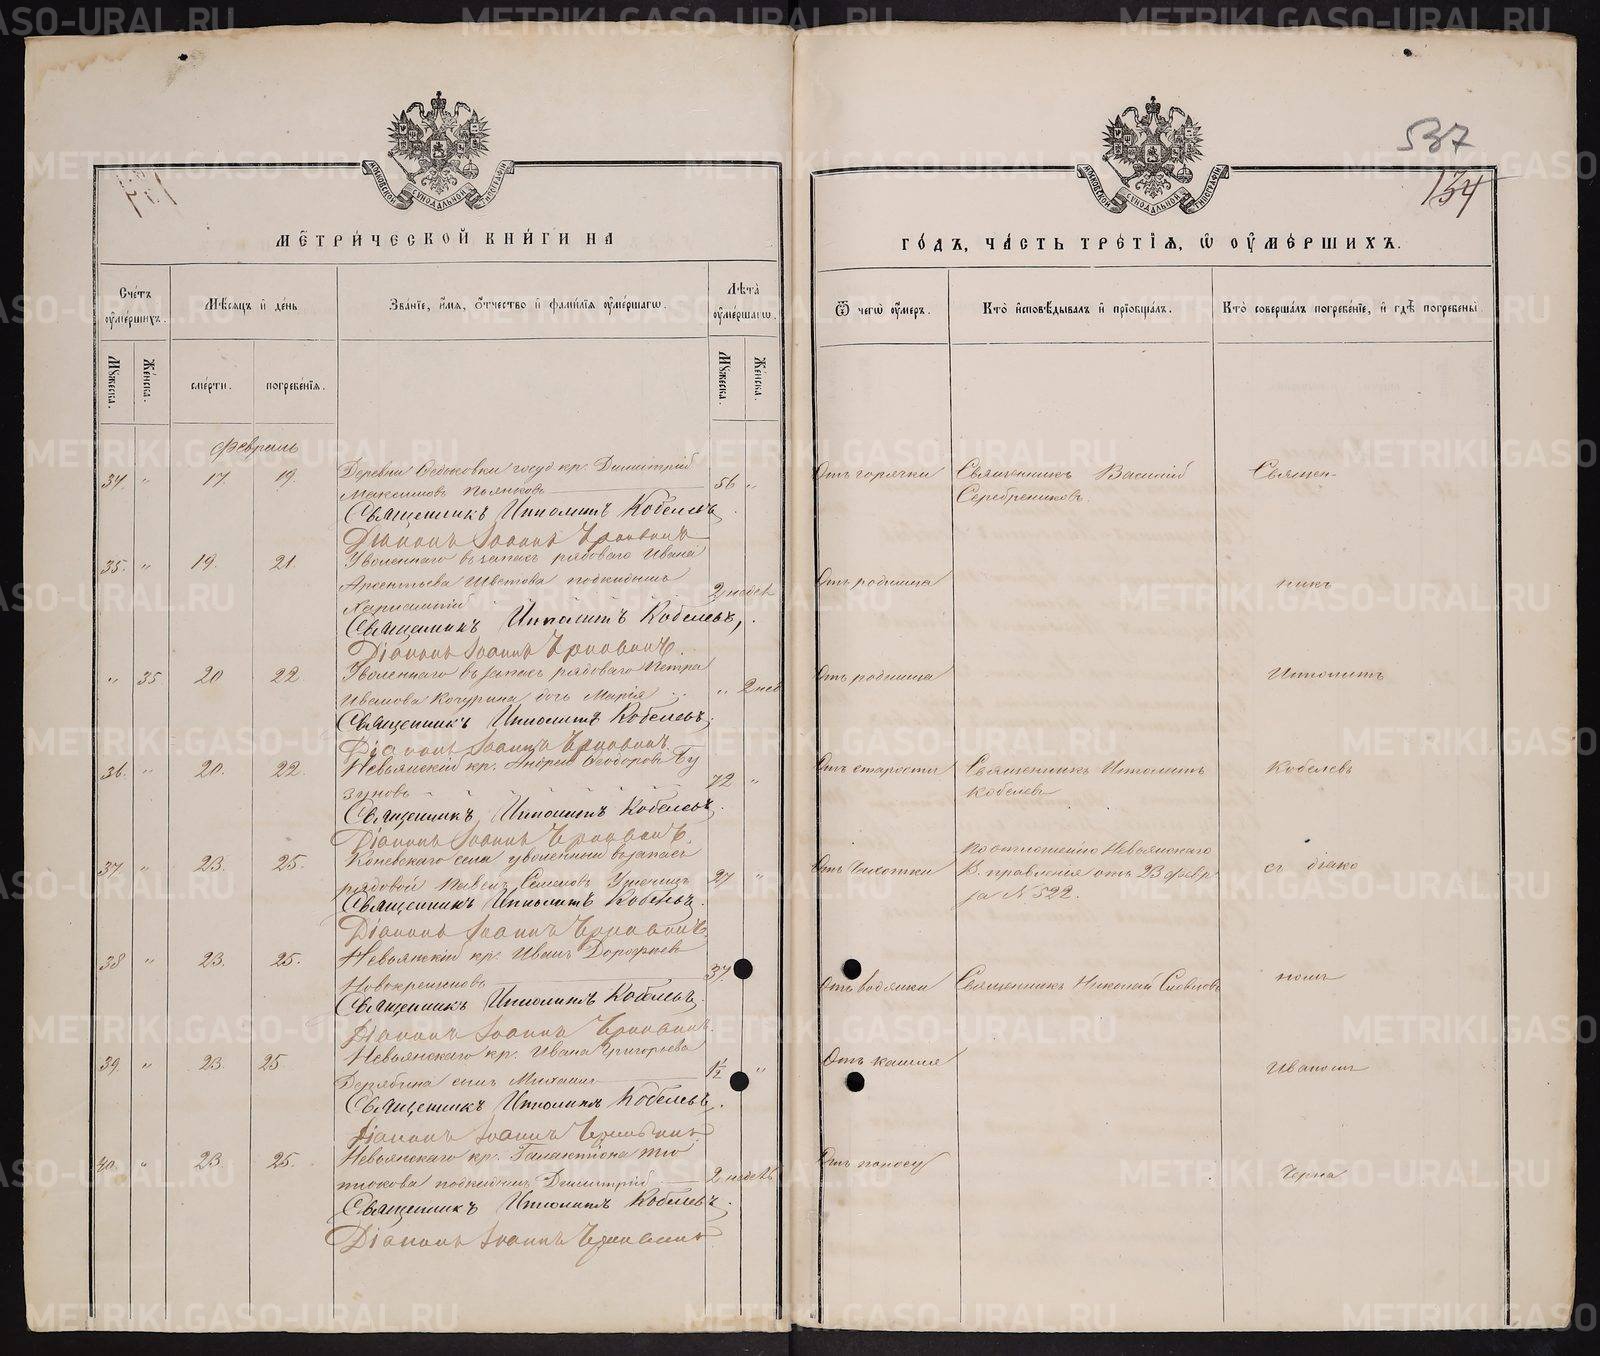 METRIKI.GASO-URAL.RU
537
134
МОСКОВСКОЙ СѴНОДАЛЬНОЙ ТИПОГРАФІИ
МЕТРИЧЕСКОЙ КНИГИ НА
Счетъ оумершихъ.
Мѣсяцъ и день
Званіе, имя, отчество и фамилія оумершагѡ.
Лѣта оумершагѡ.
Мужеска.
Женска.
смерти.
погребенія.
Мужеска.
Женска.
Февраль
34. " 17. 19. Деревни Ѳедьковки госуд кр. Димитрій 56 "
Максимовъ Пьянковъ
Священникъ Ипполитъ Кобелевъ
Діаконъ Іоаннъ Черновинъ
35. " 19. 21. Уволеннаго въ запасъ рядоваго Ивана
Арсентьева Цвѣтова подкидышъ 2 недѣл
Харлампій
Священникъ Ипполитъ Кобелевъ,
Діаконъ Іоаннъ
" 35 20 22 Уволеннаго въ запасъ рядоваго Петра
Иванова Качурина дочь Марія " 2 нед
Священникъ Ипполитъ Кобелевъ,
Діаконъ Іоаннъ
36. " 20. 22. Невьянскій кр. Андрей Ѳеодоровъ Бу
зуновъ 72 "
Священникъ Ипполитъ Кобелевъ,
Діаконъ Іоаннъ
37. " 23. 25. Коневскаго села уволенный въ запасъ
рядовой Павелъ Семеновъ 27 "
Священникъ Ипполитъ Кобелевъ.
Діаконъ Іоаннъ
38 " 23. 25. Невьянскій кр. Иванъ Дорофеевъ
Новокрещеновъ 37.
Священникъ Ипполитъ Кобелевъ.
Діаконъ Іоаннъ
39. " 23. 25 Невьянскаго кр. Ивана Григорьева
Дерябина сынъ Михаилъ 1½ "
Священникъ Ипполитъ Кобелевъ.
Діаконъ Іоаннъ
40. " 23. 25. Невьянскаго кр. Галактіона Тю
тюкова подкидышъ Димитрій 2 недѣл
Священникъ Ипполитъ Кобелевъ.
Діаконъ Іоаннъ
МОСКОВСКОЙ СѴНОДАЛЬНОЙ ТИПОГРАФІИ
ГОДЪ, ЧАСТЬ ТРЕТІЯ, Ѿ ОУМЕРШИХЪ.
Ѿ чегѡ оумеръ.
Кто исповѣдывалъ и пріобщалъ.
Кто совершалъ погребеніе, и гдѣ погребены
Отъ горячки Священникъ Василій Священ-
Серебрениковъ.
Отъ родимца никъ
Отъ родимца Ипполитъ
Отъ старости Священникъ Ипполитъ Кобелевъ
Кобелевъ
По отношенію Невьянскаго
Отъ чахотки В. правленія отъ 23 февр съ діако
ля N 522.
Отъ водянки Священникъ Николай номъ
Отъ кашля Иваномъ
Отъ поносу Черно